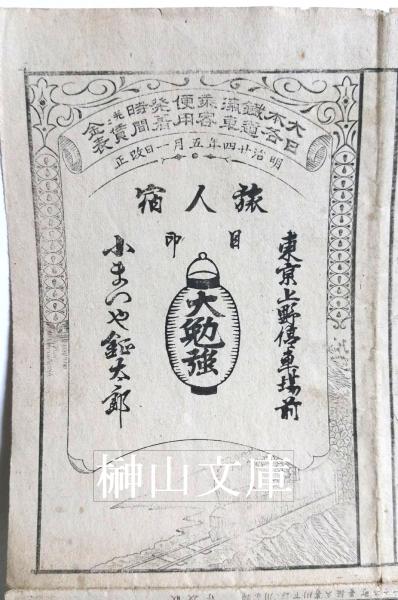 大日本各鐵道滊車乘客便用發着時間並賃金表
明治廿四年五月一日改正
旅人宿
目印
大勉强
東京上野停車塲前
小まつや鉦太郎
榊山文庫